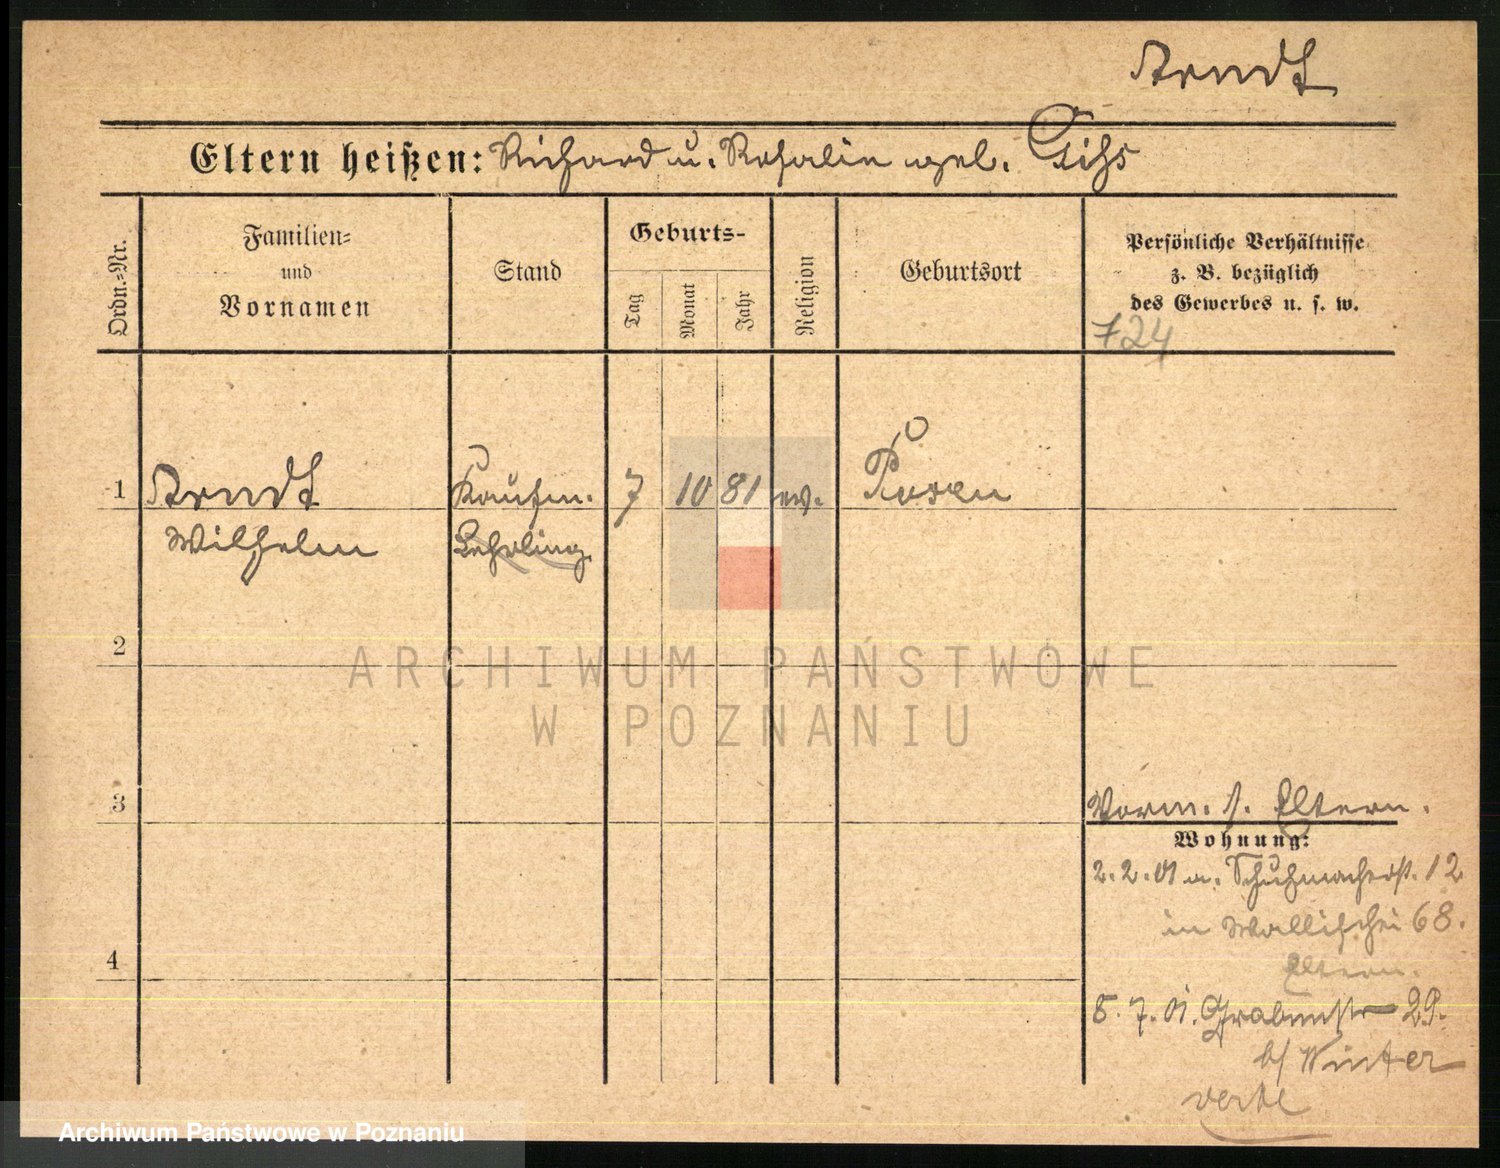 Arndt
Eltern heißen: Richard u. Rosalie geb.
Ordn.-Nr.
Familien-
und
Vornamen
Stand
Geburts-
Tag
Monat
Jahr
Religion
Geburtsort
Persönliche Verhältnisse
z. B. bezüglich
des Gewerbes u. s. w.
724
1 Arndt Kaufm. 7 10 81 ev. Posen
Wilhelm Lehrling
2
ARCHIWUM PAŃSTWOWE
W POZNANIU
3
Vorm. s. Eltern.
Wohnung:
2.2.01 a. Schuhmacherst. 12
in Wallischei 68.
4
Eltern.
5.7.01. Grabenstr 29.
b/ Winter
Archiwum Państwowe w Poznaniu